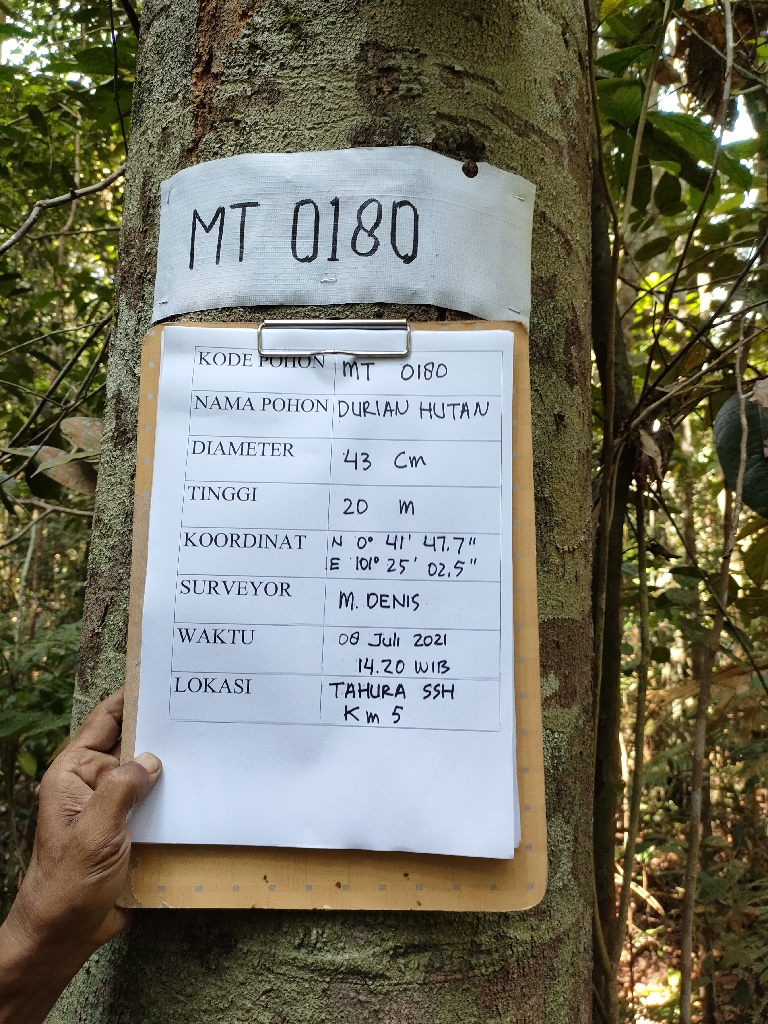 MT 0180
KODE POHON MT 0180
NAMA POHON DURIAN HUTAN
DIAMETER 43 Cm
TINGGI 20 m
KOORDINAT N 0° 41' 47.7"
E 101° 25' 02.5"
SURVEYOR M. DENIS
WAKTU 08 Juli 2021
14.20 WIB
LOKASI TAHURA SSH
Km 5